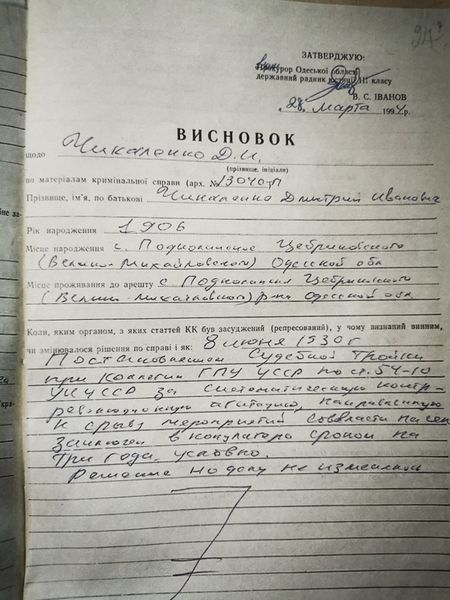 24
ЗАТВЕРДЖУЮ:
Прокурор Одеської області
державний радник юстиції III класу
В. С. ІВАНОВ
„28“ марта 1994 р.
ВИСНОВОК
щодо Чикаленко Д.И.
(прізвище, ініціали)
по матеріалам кримінальної справи (арх. № 13040-П
Прізвище, ім'я, по батькові Чикаленко Дмитрий Иванович
Рік народження 1906
Місце народження с. Цебриковского
(Велико-Михайловского) Одесской обл
Місце проживання до арешту с Цебриковского
(Велико-Михайловского) р-на Одесской обл.
Коли, яким органом, з яких статтей КК був засуджений (репресований), у чому визнаний винним,
чи змінювалося рішення по справі і як: 8 июня 1930 г
Постановлением Судебной Тройки
при Коллегии ГПУ УССР по ст. 54-10
УК УССР за систематическую контр-
революционную агитацию, направленную
к срыву мероприятий соввласти на селе
заключен в концлагерь сроком на
три года, условно.
Решение по делу не изменялось